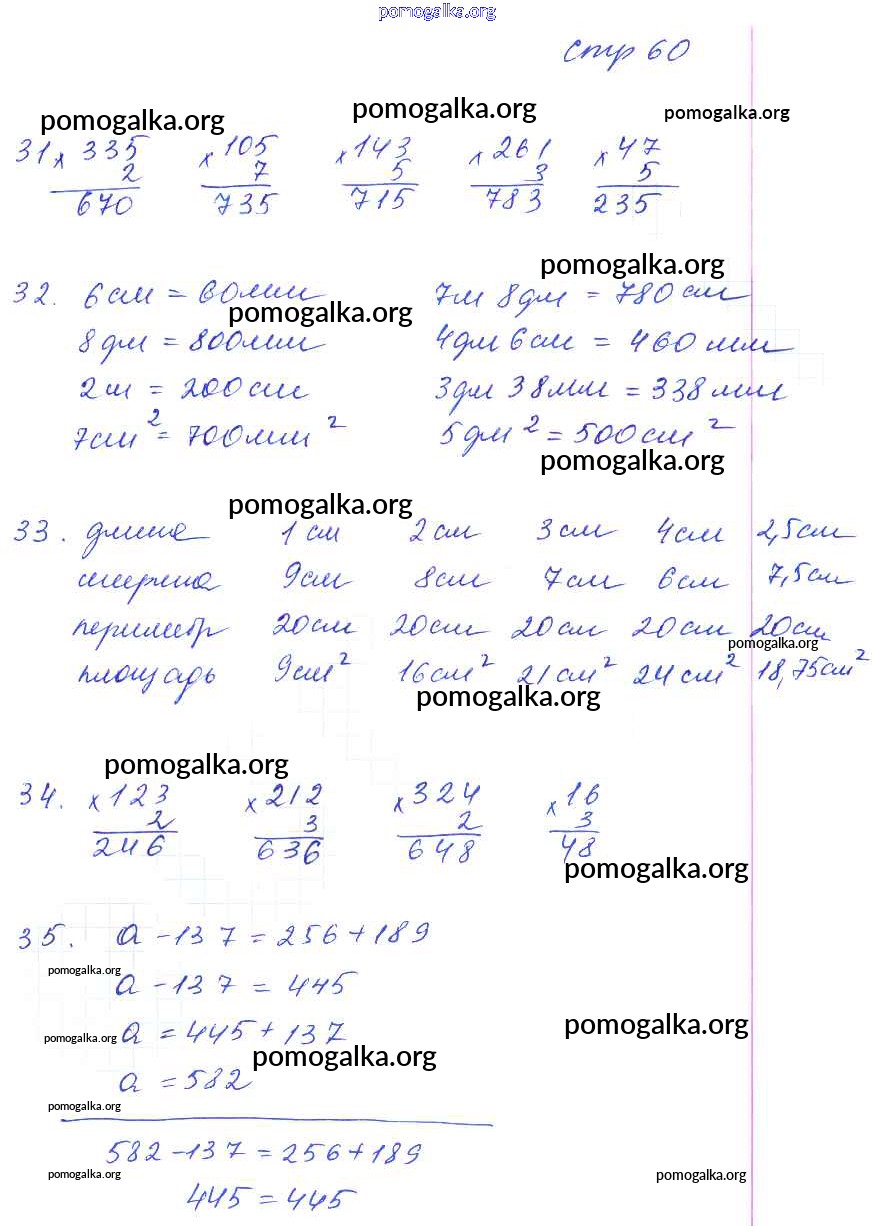 pomogalka.org
стр 60
pomogalka.org pomogalka.org pomogalka.org
31 × 335 × 105 × 143 × 261 × 47
2 7 5 3 5
670 735 715 783 235
pomogalka.org
32. 6см = 60мм 7м 8дм = 780см
pomogalka.org
8дм = 800мм 4дм 6см = 460мм
2м = 200см 3дм 38мм = 338мм
7см² = 700мм² 5дм² = 500см²
pomogalka.org
pomogalka.org
33. длина 1см 2см 3см 4см 2,5см
ширина 9см 8см 7см 6см 7,5см
периметр 20см 20см 20см 20см 20см
pomogalka.org
площадь 9см² 16см² 21см² 24см² 18,75см²
pomogalka.org
pomogalka.org
34. × 123 × 212 × 324 × 16
2 3 2 3
246 636 648 48
pomogalka.org
35. a - 137 = 256 + 189
pomogalka.org
a - 137 = 445
pomogalka.org
pomogalka.org a = 445 + 137
pomogalka.org
a = 582
pomogalka.org
582 - 137 = 256 + 189
pomogalka.org pomogalka.org
445 = 445